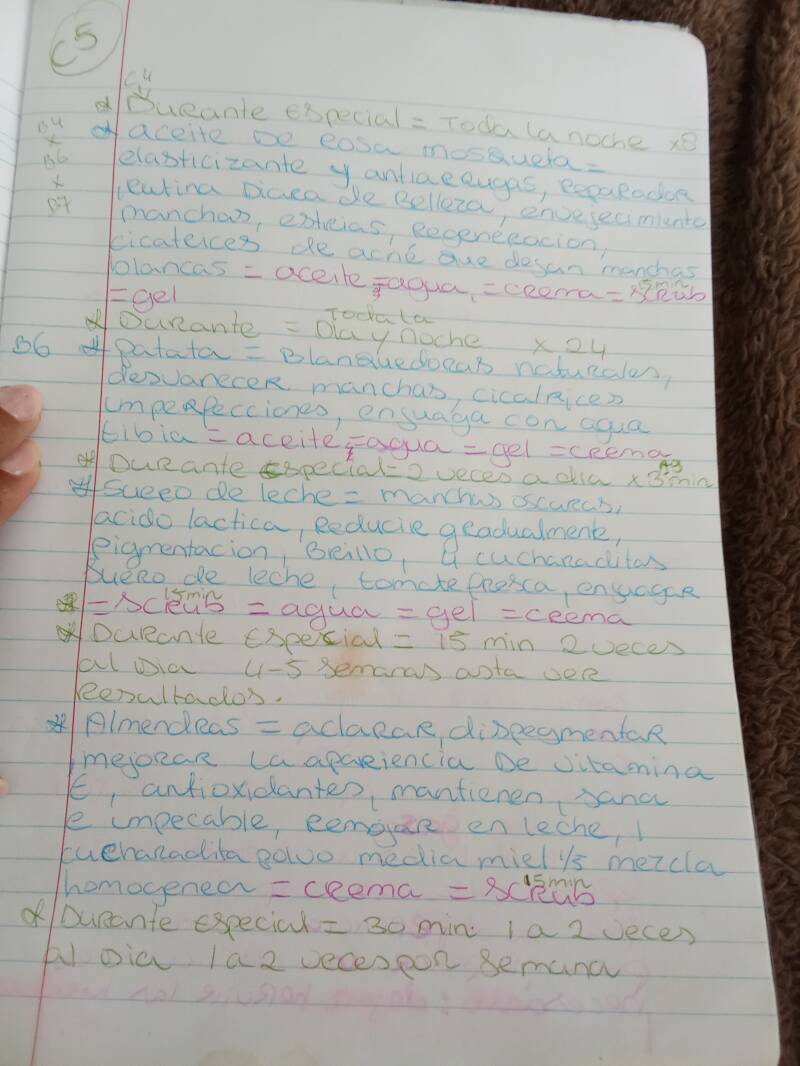 C5
C4
* Durante especial = Toda la noche x8
B4
x
B6
x
B7
* aceite De Rosa mosqueta =
elasticizante y antiarrugas, reparador
rutina Diara de Belleza, envejecimiento
manchas, estrias, Regeneracion,
cicatrices de acné que dejan manchas
blancas = aceite = agua, = crema = scrub 15min
= gel
* Durante = Toda La Dia y noche x 24
B6 * patata = Blanquedoras naturales,
desvanecer manchas, cicatrices
imperfecciones, enjuaga con agua
tibia = aceite = agua = gel = crema
* Durante Especial = 2 veces a dia x 3 min
* Suero de leche = manchas oscuras,
acido lactica, reducir gradualmente,
Pigmentacion, Brillo, 4 cucharaditas
suero de leche, tomate fresca, enjuagar
= scrub 15min = agua = gel = crema
* Durante Especial = 15 min 2 veces
al Dia 4-5 semanas asta ver
Resultados.
* Almendras = aclarar, dispegmentar
mejorar La apariencia De vitamina
E, antioxidantes, mantienen, sana
e impecable, Remojar en leche, 1
cucharadita polvo media miel 1/5 mezcla
homogenea = crema = scrub 15min
* Durante Especial = 30 min. 1 a 2 veces
al Dia 1 a 2 veces por semana